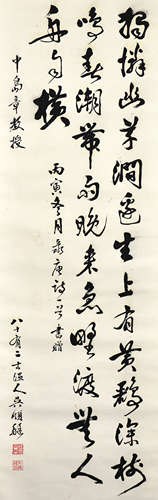 獨憐幽草澗邊生上有黃鸝深樹
鳴春潮帶雨晚來急野渡無人
舟自橫
丙寅冬月录唐詩一首書贈
中島章教授
八十有二